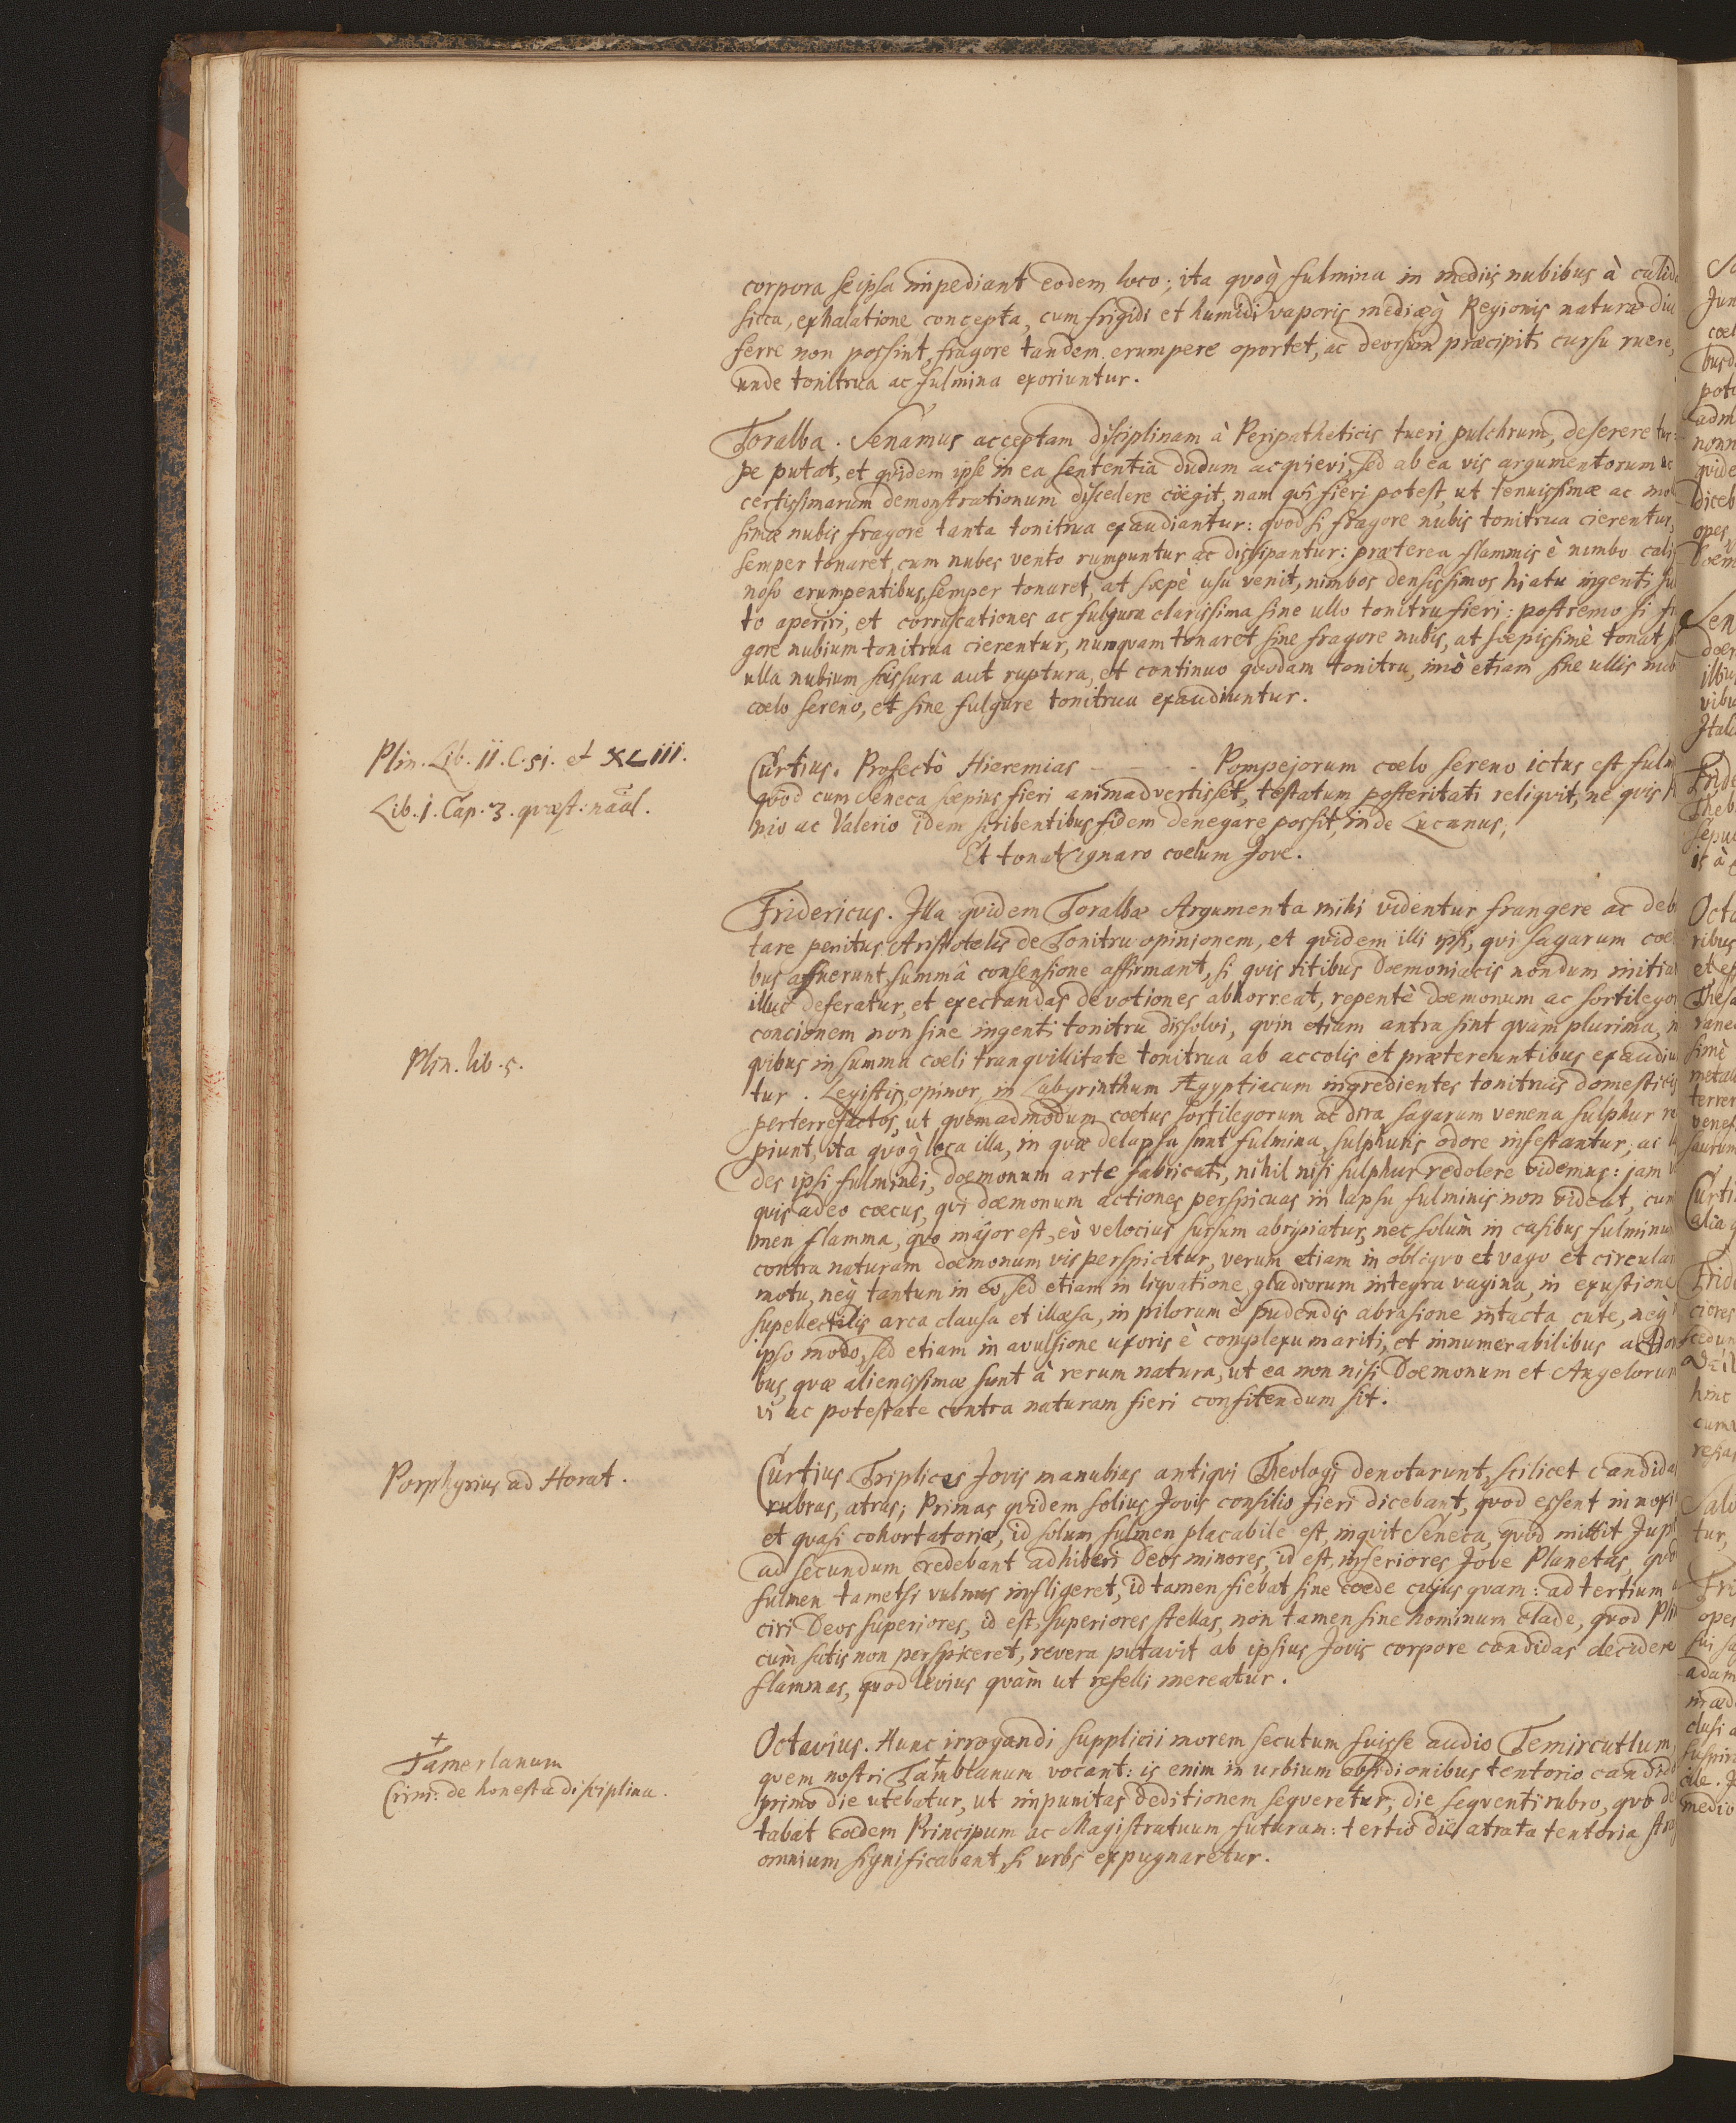 corpora seipsa impediant eodem loco; ita quoq̀ fulmina in mediis nubibus à calid
sicca, exhalatione concepta, cum frigidi et humidi vaporis mediæq̀ Regionis naturæ diu
ferre non possint, fragore tandem erumpere oportet, ac deorsum præcipiti cursu ruere,
unde tonitrua ac fulmina exoriuntur.
Toralba. Senamus acceptam disciplinam à Peripatheticis tueri pulchrum, deserere tur:
pe putat, et quidem ipse in ea sententia dudum acquievi, sed ab ea vis argumentorum ac
certissimarum demonstrationum discedere coëgit, nam quî fieri potest, ut tenuissimæ ac mol
simæ nubis fragore tanta tonitrua exaudiantur: quod si fragore nubis tonitrua cierentur,
semper tonaret, cum nubes vento rumpuntur ac dissipantur: præterea flammis è nimbo cali
noso erumpentibus, semper tonaret, at sæpè usu venit, nimbos densissimos hiatu ingenti su
to aperiri, et corruscationes ac fulgura clarissima sine ullo tonitru fieri: postremo si fr
gore nubium tonitrua cierentur, nunquam tonaret sine fragore nubis, at sæpissimè tonat s
ulla nubium scissura aut ruptura, et continuo quodam tonitru, imò etiam sine ullis nub
coelo sereno, et sine fulgure tonitrua exaudiuntur.
Plin. Lib. II. C. 51. et XLIII.
Lib. I. Cap. 3. quæst: naãl.
Curtius. Profectò Hieremias - - - - Pompejorum coelo sereno ictus est fulm
quod cum Seneca sæpius fieri animadvertisset, testatum posteritati reliquit, ne quis P
nio ac Valerio idem scribentibus fidem denegare possit, inde Lucanus,
Et tonat ignaro coelum Jove.
Fridericus. Illa quidem Toralbæ Argumenta mihi videntur frangere ac deb
tare penitus Aristotelis de Tonitru opinionem, et quidem illi ipsi, qui sagarum coe
bus affuerunt, summâ consensione affirmant, si quis ritibus Dæmoniacis nondum initia
illuc deferatur, et execrandas devotiones abhorreat, repentè dæmonum ac sortilego
concionem non sine ingenti tonitru dissolvi, quin etiam antra sint quàm plurima, in
quibus in summa coeli tranquillitate tonitrua ab accolis et prætereuntibus exaudiu
Plin. lib. 5.
tur. Legistis, opinor, in Labyrinthum Ægyptiacum ingredientes tonitruis domesticis
perterrefactos, ut quemadmodum coetus sortilegorum ac dira sagarum venena sulphur re
piunt, ita quoq̀ loca illa, in quæ delapsa sunt fulmina, sulphuris odore infestantur, ac l
des ipsi fulminei, dæmonum arte fabricati, nihil nisi sulphur redolere videmus: jam v
quis adeo coecus, qui dæmonum actiones perspicuas in lapsu fulminis non videat, cum
men flamma, quo major est, eò velocius sursum abripiatur, nec solùm in casibus fulminu
contra naturam dæmonum vis perspicitur, verum etiam in obliquo et vago et circular
motu, neq̀ tantum in eo, sed etiam in liquatione gladiorum integra vagina, in exustione
supellectilis arca clausa et illæsa, in pilorum è pudendis abrasione intacta cute, neq̀
ipso modo, sed etiam in avulsione uxoris è complexu mariti, et innumerabilibus action
bus, quæ alienissimæ sunt à rerum natura, ut ea non nisi Dæmonum et Angelorum
vi ac potestate contra naturam fieri confitendum sit.
Porphyrius ad Horat.
Curtius. Triplices Jovis manubias antiqui Theologi denotarunt, scilicet candidas
rubras, atras; Primas quidem solius Jovis consilio fieri dicebant, quod essent innoxi
et quasi cohortatoriæ, id solum fulmen placabile est, inquit Seneca, quod mittit Jupi
ad secundum credebant adhiberi Deos minores, id est, inferiores Jove Planetas, quod
fulmen tametsi vulnus infligeret, id tamen fiebat sine cæde cujusquam: ad tertium
ciri Deos superiores, id est, superiores stellas, non tamen sine hominum clade, quod Plin
cùm satis non perspiceret, revera putavit ab ipsius Jovis corpore candidas decidere
flammas, quod levius quàm ut refelli mereatur.
Octavius. Hunc irrogandi supplicii morem secutum fuisse audio Temircutlum
+
Tamerlanum
Crini: de honesta disciplina.
quem nostri Tamblanum vocant: is enim in urbium obsidionibus tentorio candido
primo die utebatur, ut impunitas deditionem sequeretur, die sequenti rubro, quo de
tabat cædem Principum ac Magistratuum futuram: tertio die atrata tentoria stra
omnium significabant, si urbs expugnaretur.